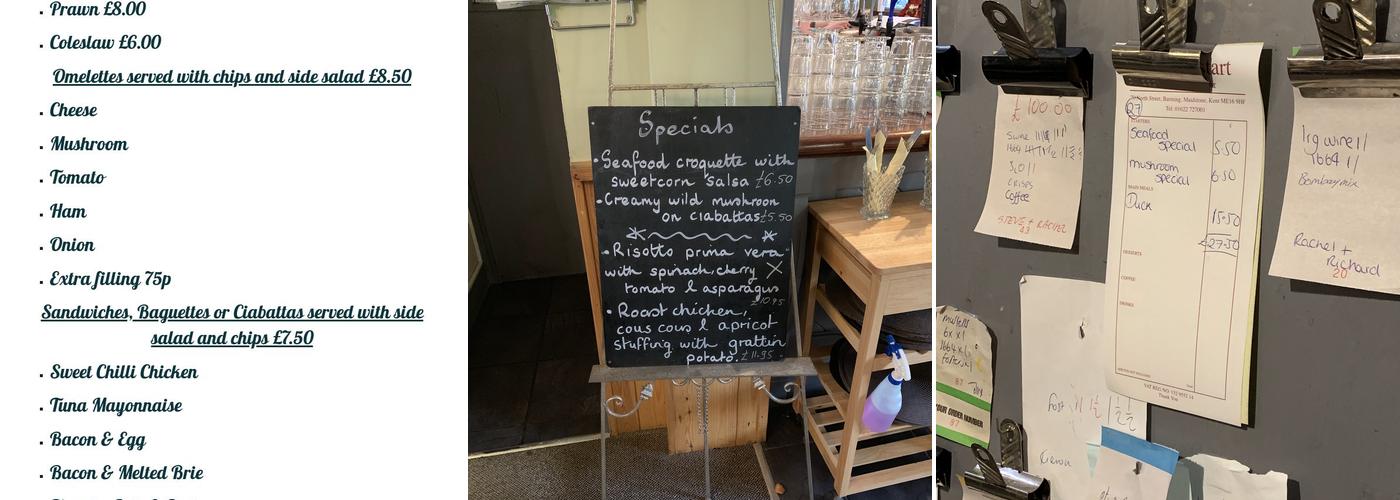 Prawn £8.00
Coleslaw £6.00
Omelettes served with chips and side salad £8.50
Cheese
Mushroom
Tomato
Ham
Onion
Extra filling 75p
Sandwiches, Baguettes or Ciabattas served with side
salad and chips £7.50
Sweet Chilli Chicken
Tuna Mayonnaise
Bacon & Egg
Bacon & Melted Brie
Specials
Seafood croquette with
sweetcorn salsa £6.50
Creamy wild mushroom
on ciabattas £5.50
Risotto prima vera
with spinach, cherry
tomato & asparagus
£10.95
Roast chicken,
cous cous & apricot
stuffing with grattin
potato. £11.95
£100.00
1664
CRISPS
Coffee
STEVE + RACHEL
43
tart
North Street, Barming, Maidstone, Kent ME16 9HF
Tel: 01622 727001
27
STARTERS
Seafood
special 5.50
mushroom
special 6.50
MAIN MEALS
Duck
15.50
£27.50
DESSERTS
COFFEE
DRINKS
Thank You
lrg wine 11
1664 11
Bombay mix
Rachel +
Richard
20
6x x1
1664 x1
87
COUNT ORDER NUMBER
87
Kieron